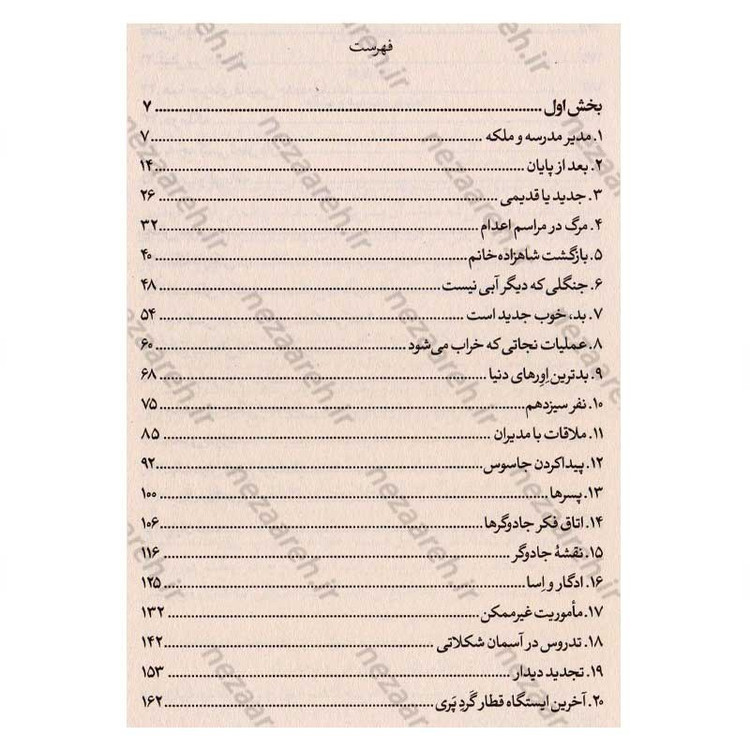 فهرست
بخش اول ... ۷
۱. مدیر مدرسه و ملکه ... ۷
۲. بعد از پایان ... ۱۴
۳. جدید یا قدیمی ... ۲۶
۴. مرگ در مراسم اعدام ... ۳۲
۵. بازگشت شاهزاده خانم ... ۴۰
۶. جنگلی که دیگر آبی نیست ... ۴۸
۷. بد، خوب جدید است ... ۵۴
۸. عملیات نجاتی که خراب می‌شود ... ۶۰
۹. بدترین اِوِرهای دنیا ... ۶۸
۱۰. نفر سیزدهم ... ۷۵
۱۱. ملاقات با مدیران ... ۸۵
۱۲. پیدا کردن جاسوس ... ۹۲
۱۳. پسرها ... ۱۰۰
۱۴. اتاق فکر جادوگرها ... ۱۰۶
۱۵. نقشهٔ جادوگر ... ۱۱۶
۱۶. ادگار و اِسا ... ۱۲۵
۱۷. مأموریت غیرممکن ... ۱۳۲
۱۸. تدروس در آسمان شکلاتی ... ۱۴۲
۱۹. تجدید دیدار ... ۱۵۳
۲۰. آخرین ایستگاه قطار گَردِ پَری ... ۱۶۲
nezaareh.ir